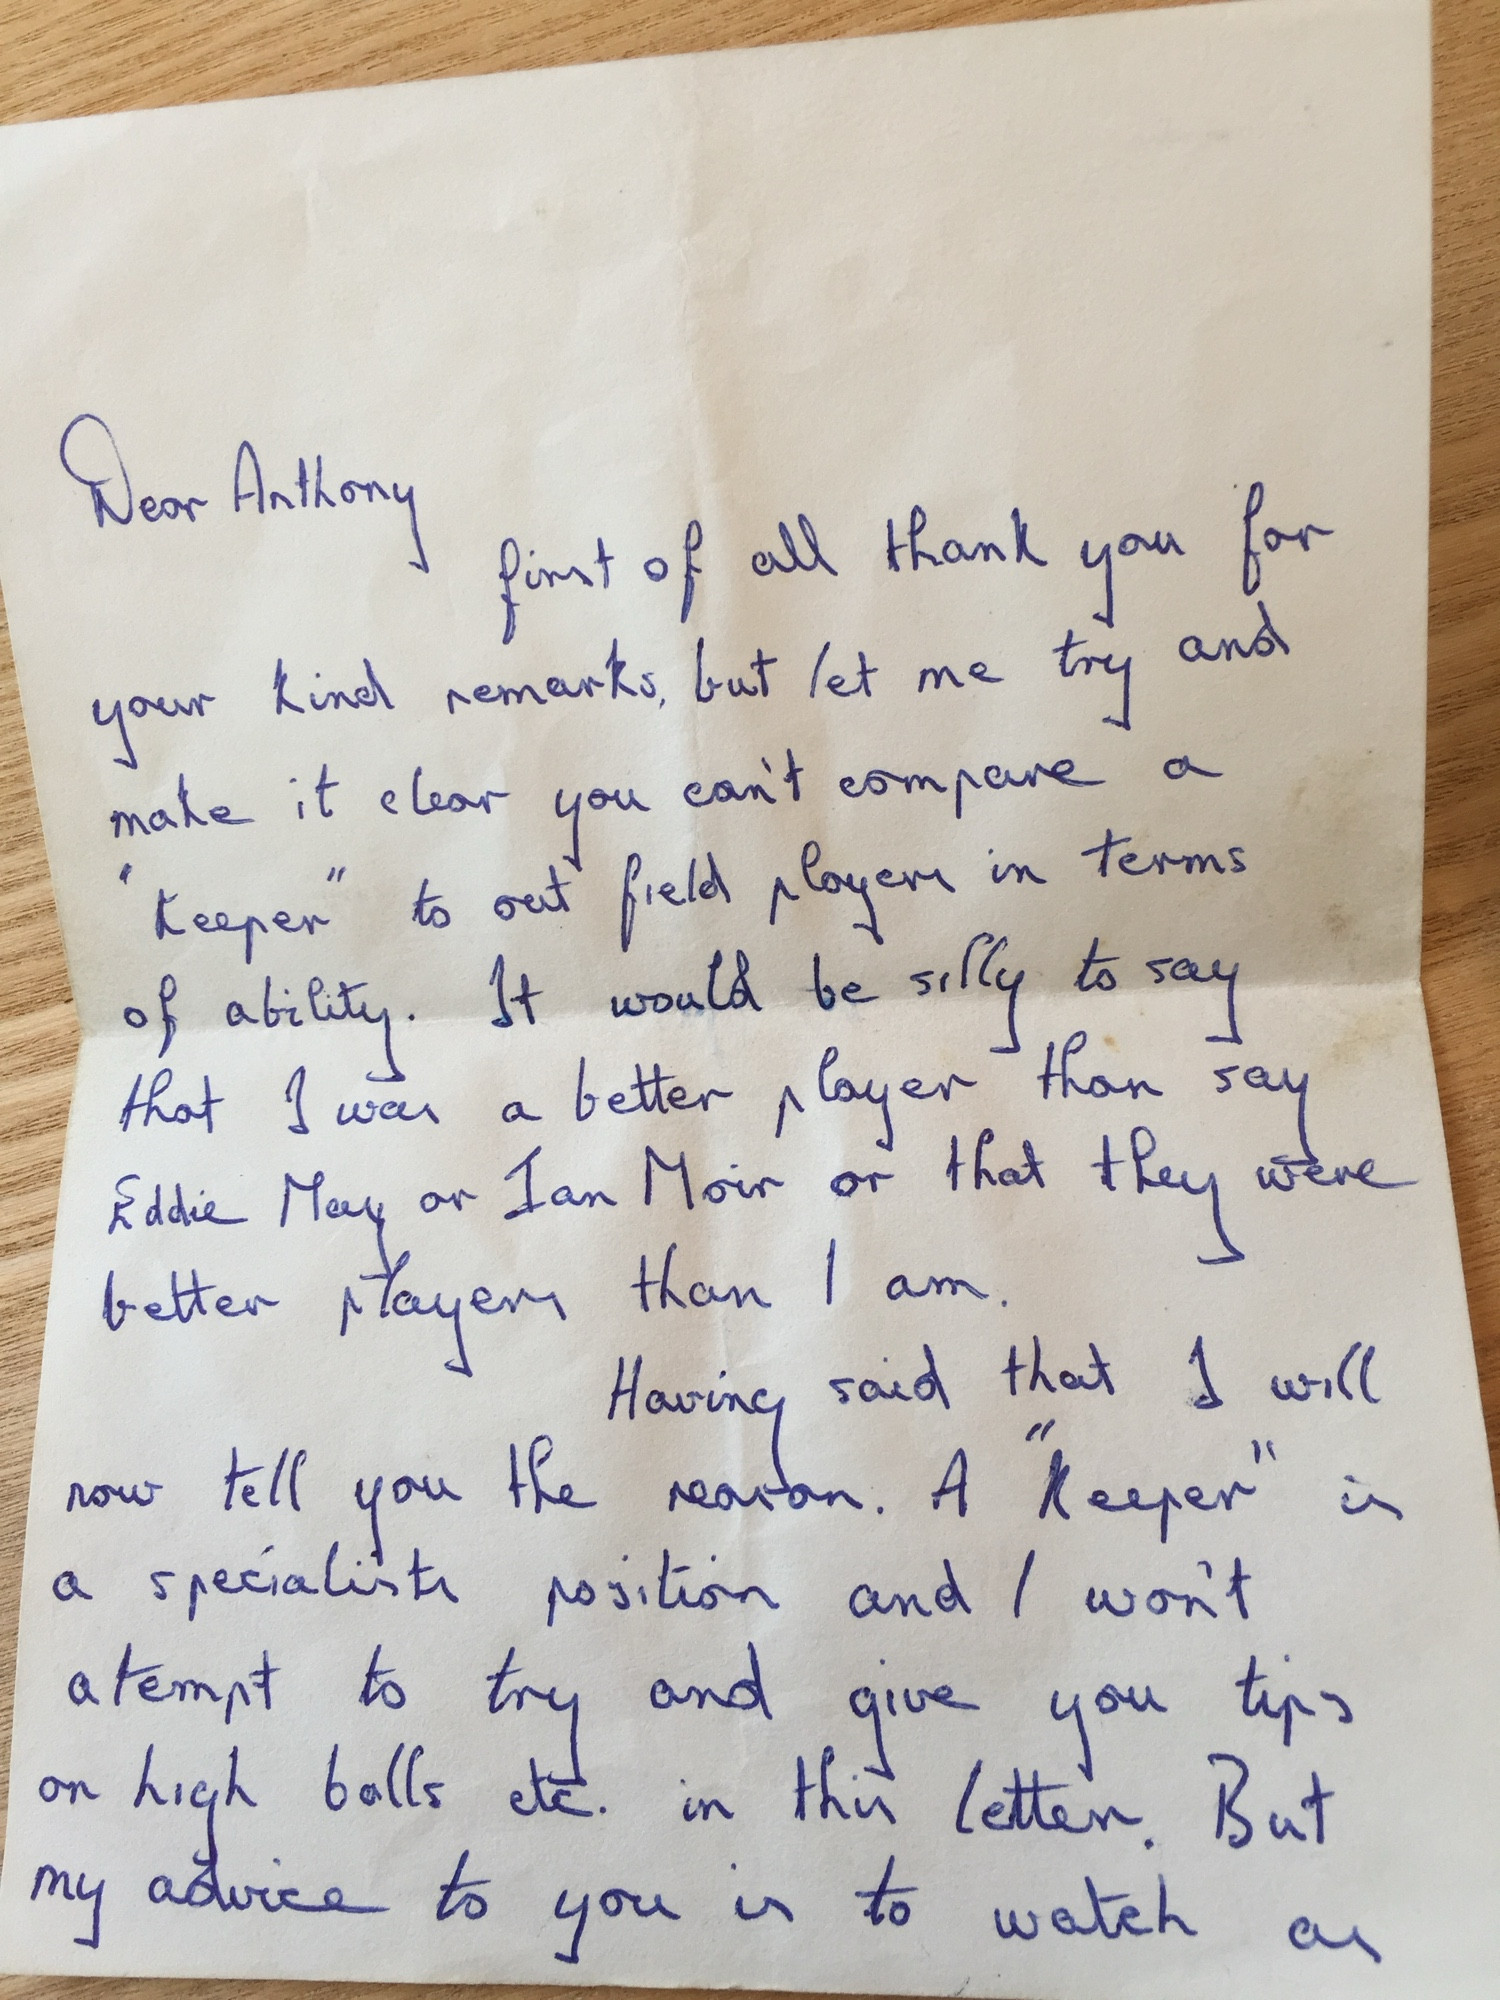 Dear Anthony
first of all thank you for
your kind remarks, but let me try and
make it clear you can't compare a
"Keeper" to out field players in terms
of ability. It would be silly to say
that I was a better player than say
Eddie May or Ian Moir or that they were
better players than I am.
Having said that I will
now tell you the reason. A "Keeper" is
a specialists position and I won't
atempt to try and give you tips
on high balls etc. in this letter. But
my advice to you is to watch as